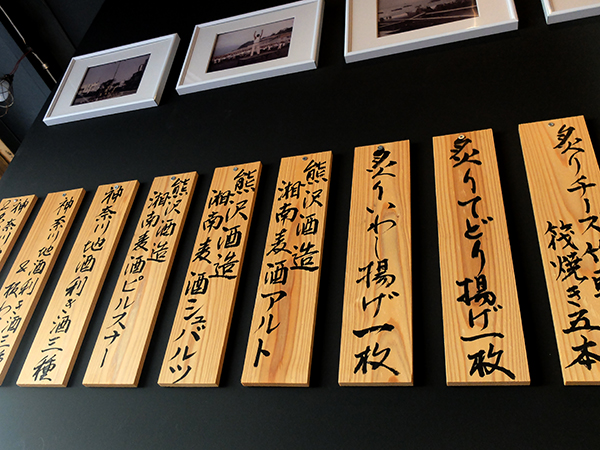 炙りチーズ竹
筏焼き五本
炙りてどり揚げ一枚
炙りいわし揚げ一枚
熊沢酒造
湘南麦酒アルト
熊沢酒造
湘南麦酒シュバルツ
熊沢酒造
湘南麦酒ピルスナー
神奈川地酒利き酒三種
神奈川地酒利き酒三
&板わ
神奈川